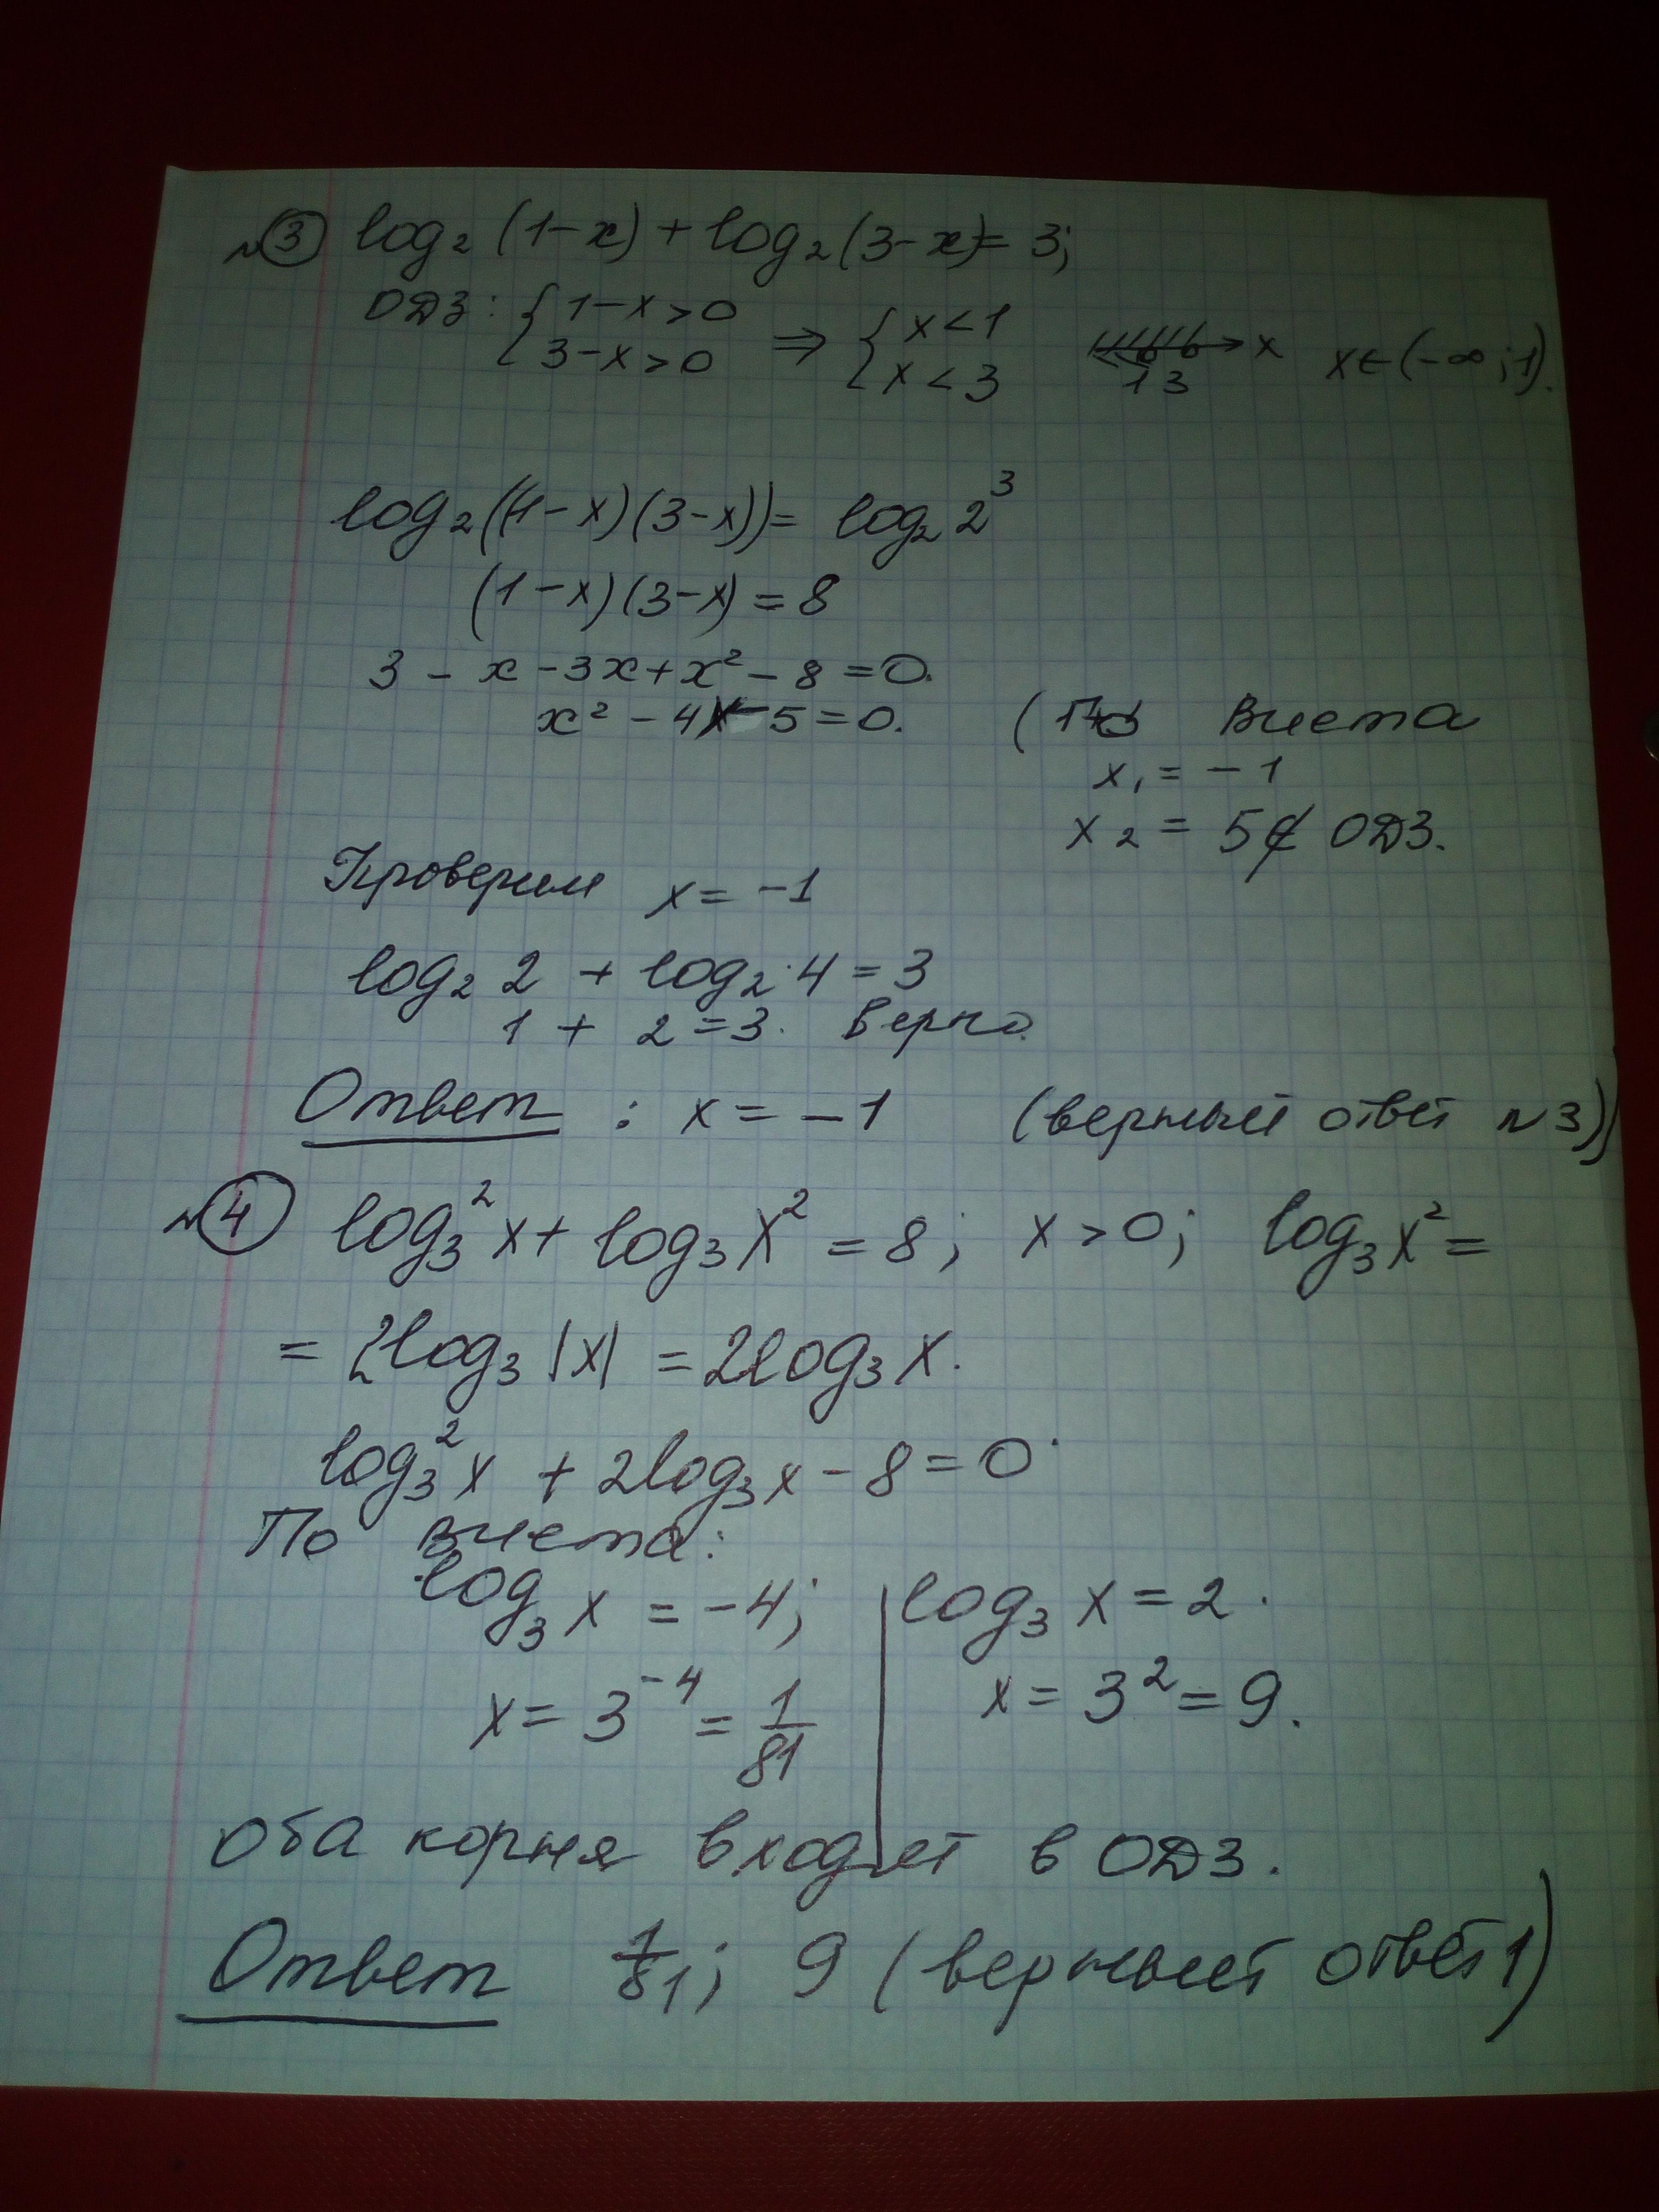 №3 log₂(1-x)+log₂(3-x)=3;
ОДЗ: { 1-x>0 3-x>0 ⇒ { x<1 x<3 1 3 x x∈(-∞;1).
log₂((1-x)(3-x))= log₂2³
(1-x)(3-x)=8
3-x-3x+x²-8=0.
x²-4x-5=0. (По Виета
x₁=-1
x₂=5∉ ОДЗ.
Проверим x=-1
log₂2+log₂4=3
1+2=3. Верно.
Ответ: x=-1 (верный ответ №3)
№4 log₃²x+log₃x²=8; x>0; log₃x²=
=2log₃|x|=2log₃x.
log₃²x+2log₃x-8=0.
По Виета:
log₃x=-4; log₃x=2.
x=3⁻⁴=1/81 x=3²=9.
Оба корня входят в ОДЗ.
Ответ 1/81; 9 (верный ответ 1)